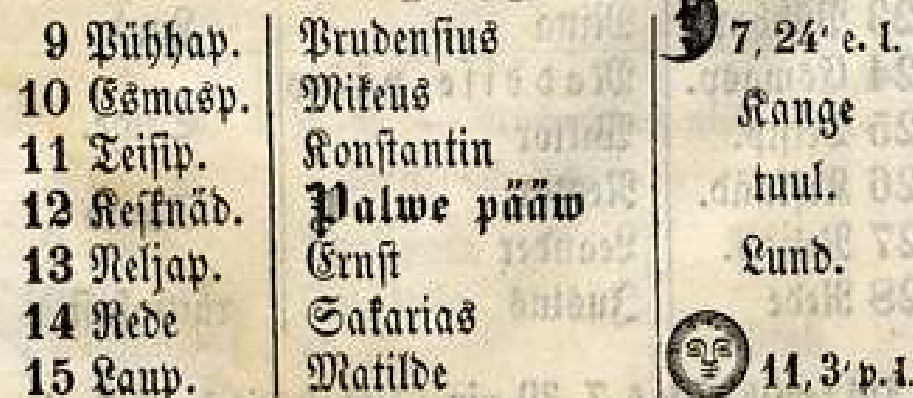 9 Pühhap. Prudensius 7, 24' e. l.
10 Esmasp. Mikeus Kange
11 Teisip. Konstantin
12 Kesknäd. Palwe pääw tuul.
13 Neljap. Ernst Lund.
14 Rede Sakarias
15 Laup. Matilde 11, 3' p. l.